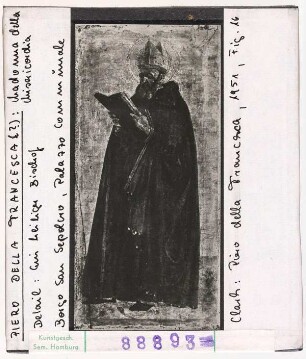 PIERO DELLA FRANCESCA (?): Madonna della
Misericordia
Detail: Ein heiliger Bischof
Borgo San Sepolcro Palazzo Communale
Clark: Piero della Francesca, 1951, Fig. 16
Kunstgesch.
Sem. Hamburg
88893